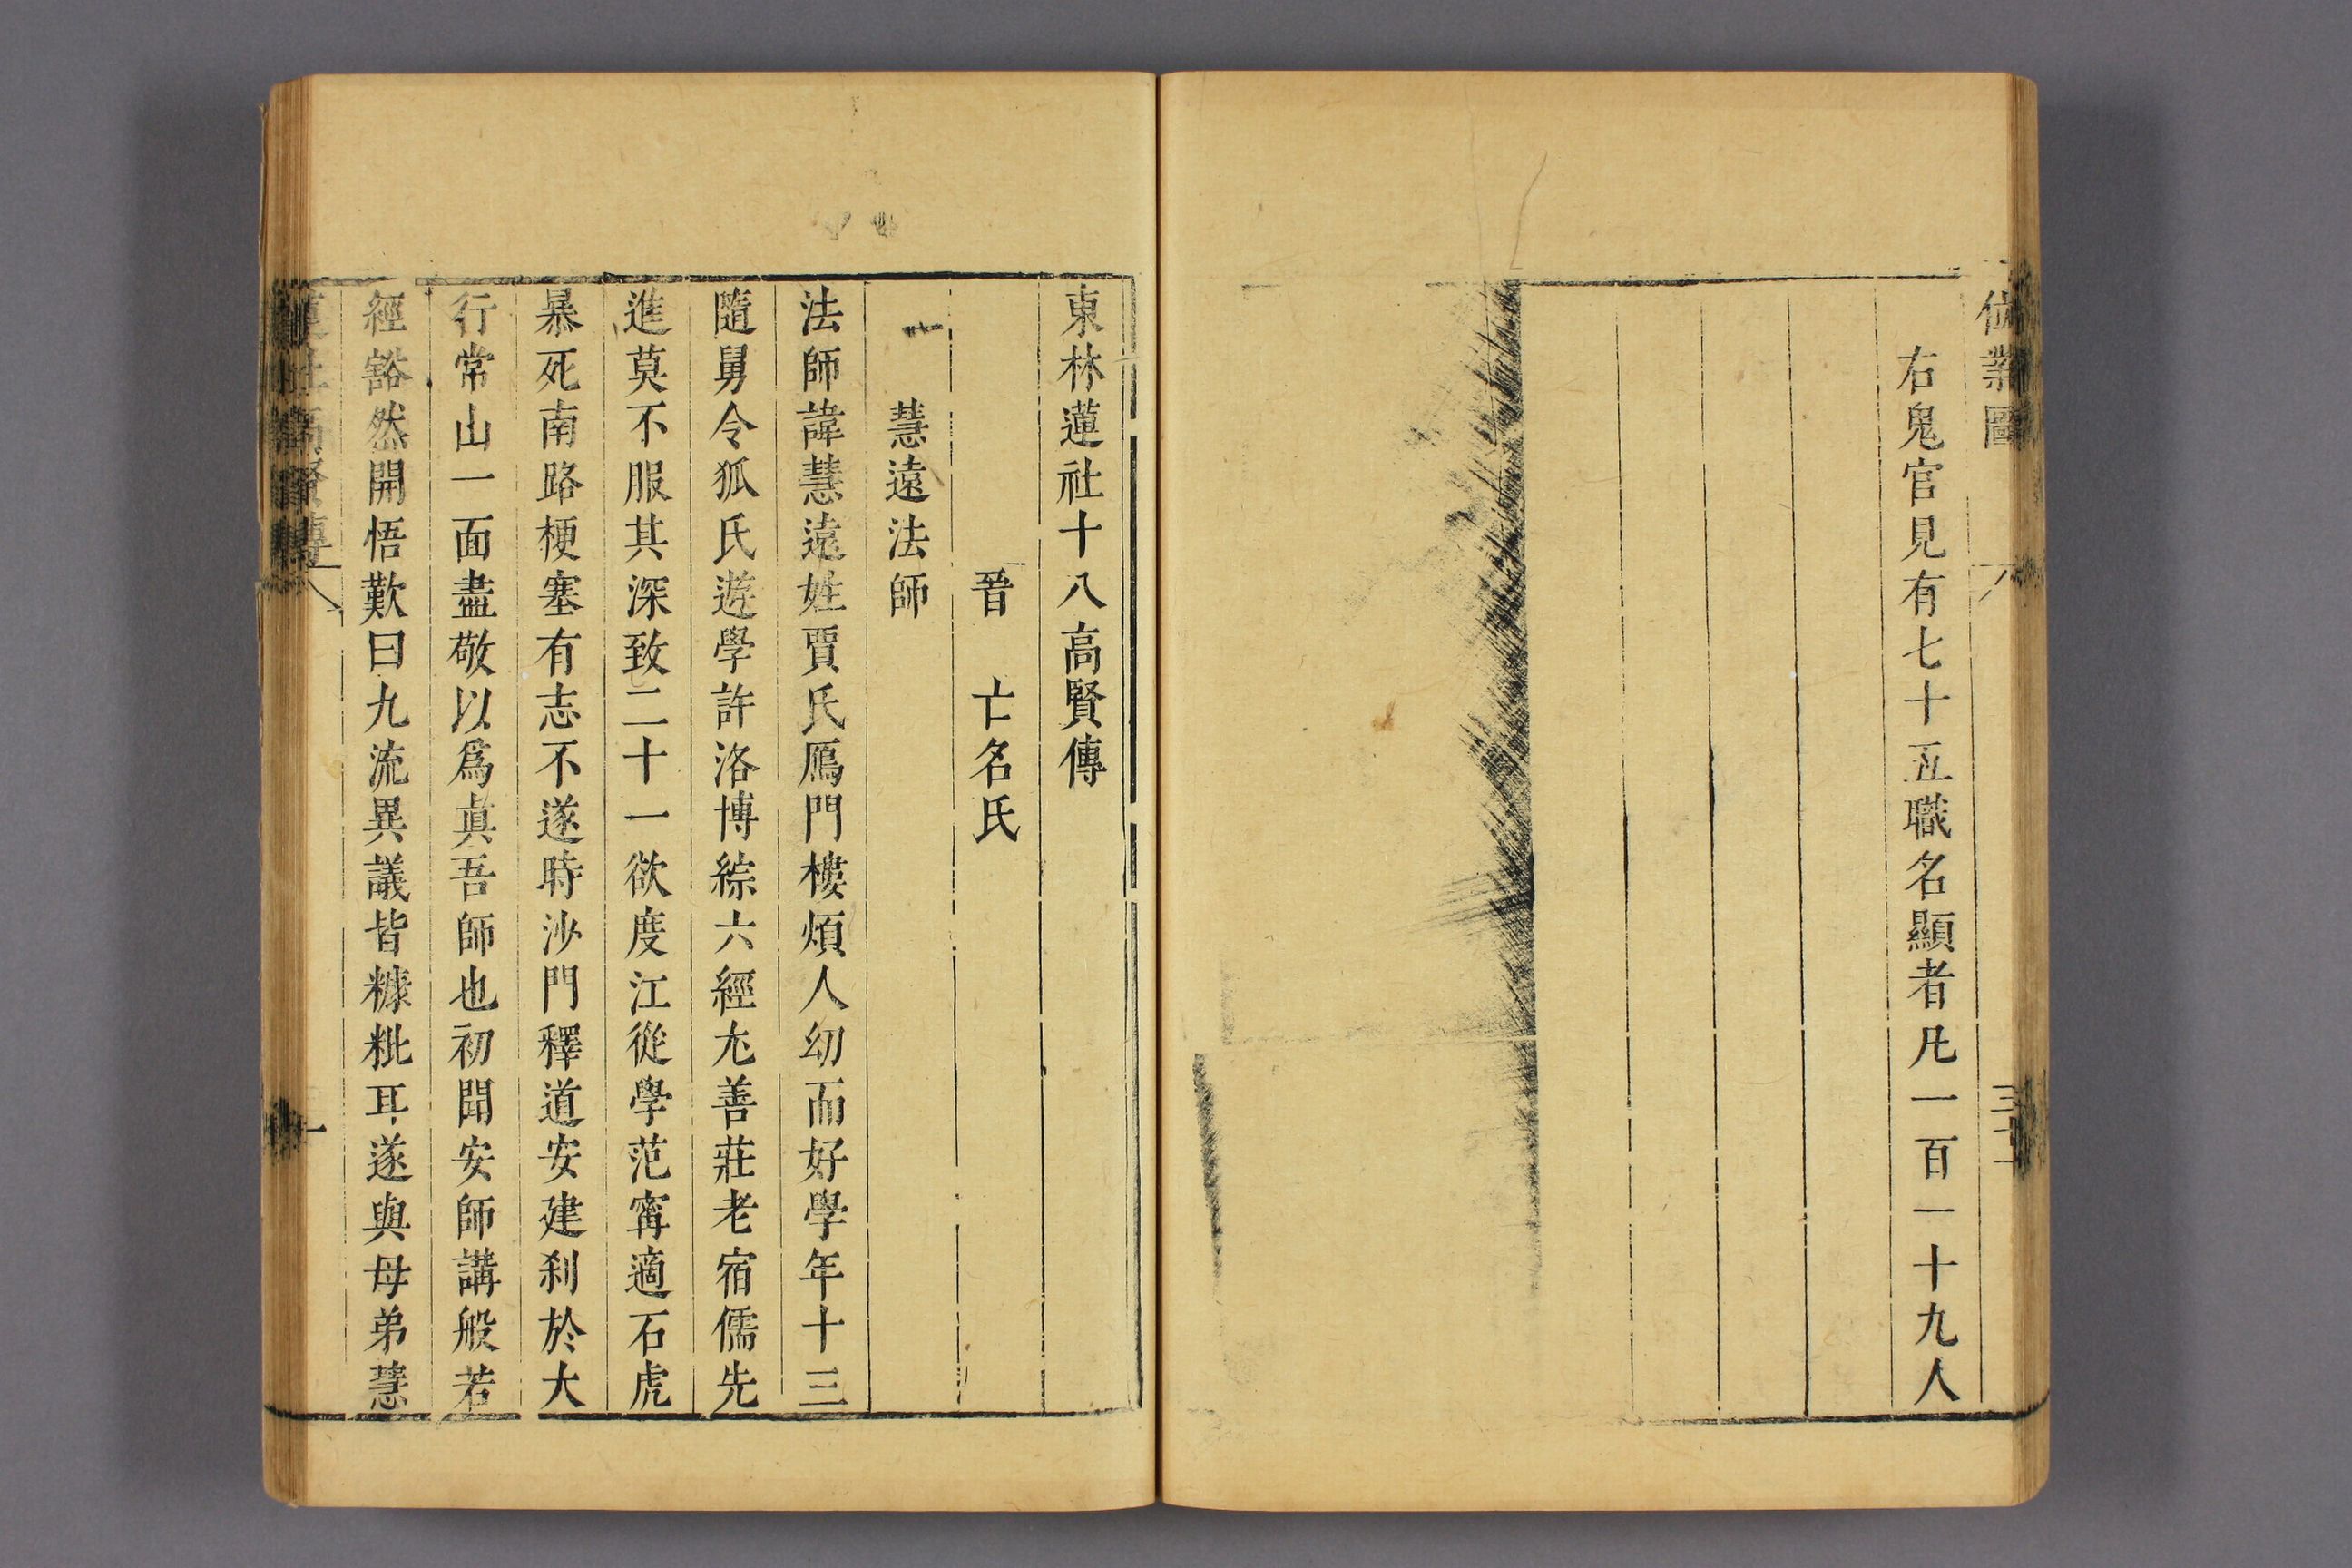 位業圖 八 三十一
右鬼官見有七十五職名顯者凡一百一十九人
東林蓮社十八高賢傳
晉 亡名氏
慧遠法師
法師諱慧遠姓賈氏鴈門樓煩人幼而好學年十三
隨舅令狐氏遊學許洛博綜六經尢善莊老宿儒先
進莫不服其深致二十一欲度江從學范甯適石虎
暴死南路梗塞有志不遂時沙門釋道安建刹於大
行常山一面盡敬以爲眞吾師也初聞安師講般若
經豁然開悟歎曰九流異議皆糠粃耳遂與母弟慧
蓮社高賢傳 八 一